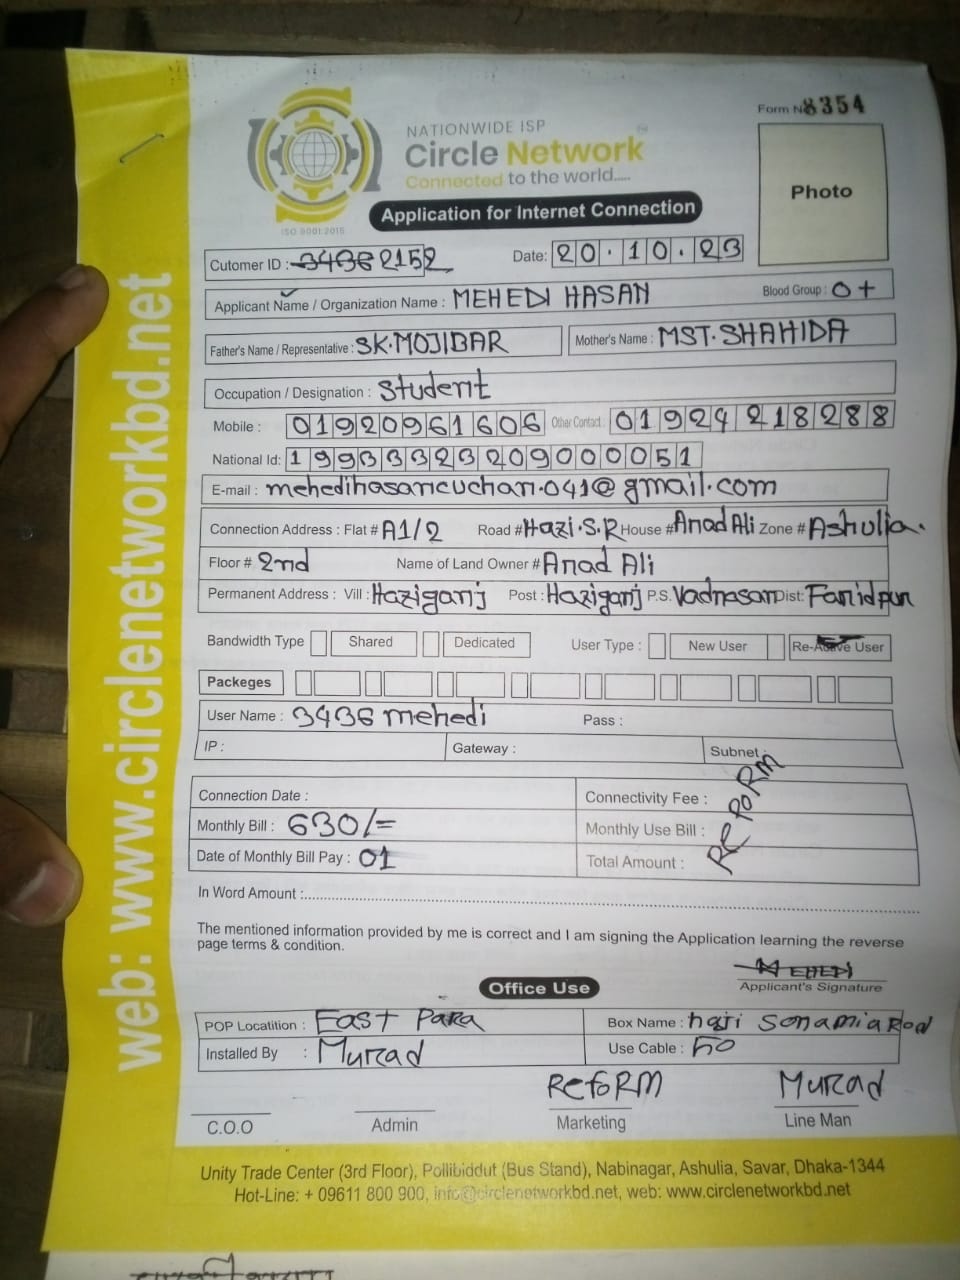 Form No 8354
NATIONWIDE ISP
Circle Network
Connected to the world.....
ISO 9001:2015
Photo
Application for Internet Connection
Cutomer ID : 2152 Date: 20.10.23
Applicant Name / Organization Name : MEHEDI HASAN Blood Group : O+
Father's Name / Representative : SK.MOJIBAR Mother's Name : MST.SHAHIDA
Occupation / Designation : Student
Mobile : 01920961606 Other Contact : 01924218288
National Id: 19933323209000051
E-mail : @gmail.com
Connection Address : Flat # A1/2 Road # Hazi.S.R House # Anad Ali Zone # Ashulia.
Floor # 2nd Name of Land Owner # Anad Ali
Permanent Address : Vill : Haziganj Post : Haziganj P.S. Dist: Faridpur
Bandwidth Type Shared Dedicated User Type : New User Re-Active User
Packeges
User Name : 3436 mehedi Pass :
IP : Gateway : Subnet :
Connection Date : Connectivity Fee :
Monthly Bill : 630/= Monthly Use Bill :
Date of Monthly Bill Pay : 01 Total Amount :
ReFoRM
In Word Amount :
The mentioned information provided by me is correct and I am signing the Application learning the reverse
page terms & condition.
MEHEDI
Applicant's Signature
Office Use
POP Locatition : East Para Box Name : hazi Sonamia Rod
Installed By : Murad Use Cable : 50
ReFoRM Murad
C.O.O Admin Marketing Line Man
Unity Trade Center (3rd Floor), Pollibiddut (Bus Stand), Nabinagar, Ashulia, Savar, Dhaka-1344
Hot-Line: + 09611 800 900, info@circlenetworkbd.net, web: www.circlenetworkbd.net
web: www.circlenetworkbd.net